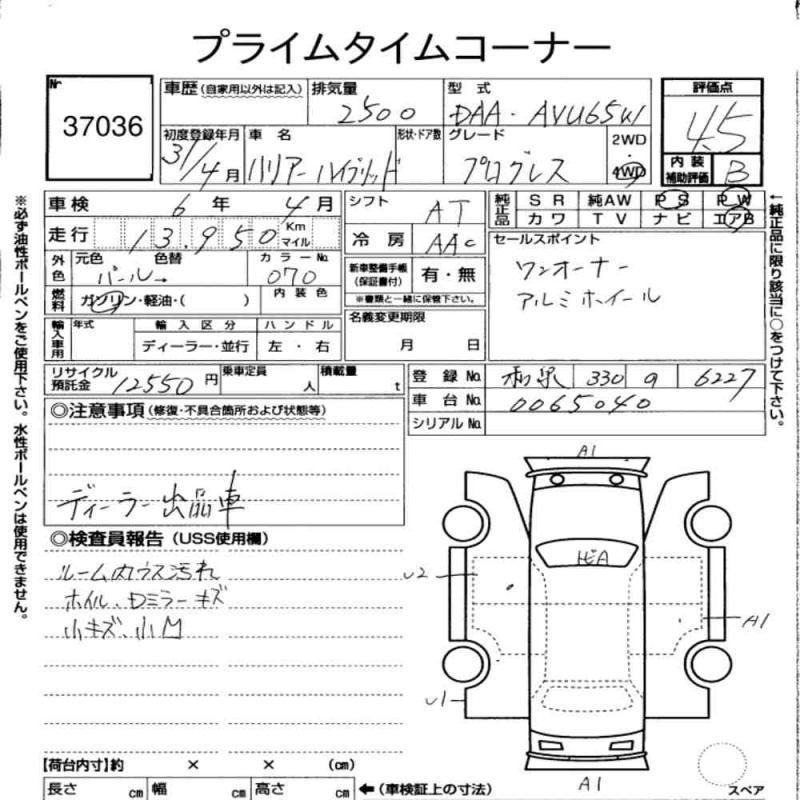 プライムタイムコーナー
No 37036
車歴(自家用以外は記入) 排気量 2500 型式 DAA・AVU65W 評価点 4.5
初度登録年月 31/4月 車名 ハリアーハイブリッド 形状・ドア数 グレード プログレス 2WD・4WD 内装補助評価 B
車検 6年 4月 シフト AT 純正品 SR 純AW PS PW
カワ TV ナビ エアB
走行 13,950 Km マイル 冷房 AAC セールスポイント
外色 元色 パール 色替 → カラーNo 070 新車整備手帳(保証書付) 有・無 ワンオーナー
※書類と一緒に保管下さい。 アルミホイール
燃料 ガソリン・軽油・( ) 内装色
輸入車用 年式 輸入区分 ハンドル 名義変更期限
ディーラー・並行 左・右 月 日
リサイクル預託金 12550円 乗車定員 人 積載量 t 登録No 和泉 330 9 6227
車台No 0065040
シリアルNo
◎注意事項(修復・不具合箇所および状態等)
ディーラー出品車
◎検査員報告(USS使用欄)
ルーム内ウス汚れ
ホイル、Dミラーキズ
小キズ、小凹
A1
ヒビA
U2
A1
U1
A1
スペア
【荷台内寸】約 × × (cm)
長さ cm 幅 cm 高さ cm ←(車検証上の寸法)
※必ず油性ボールペンをご使用下さい。水性ボールペンは使用できません。
←純正品に限り該当に○をつけて下さい。